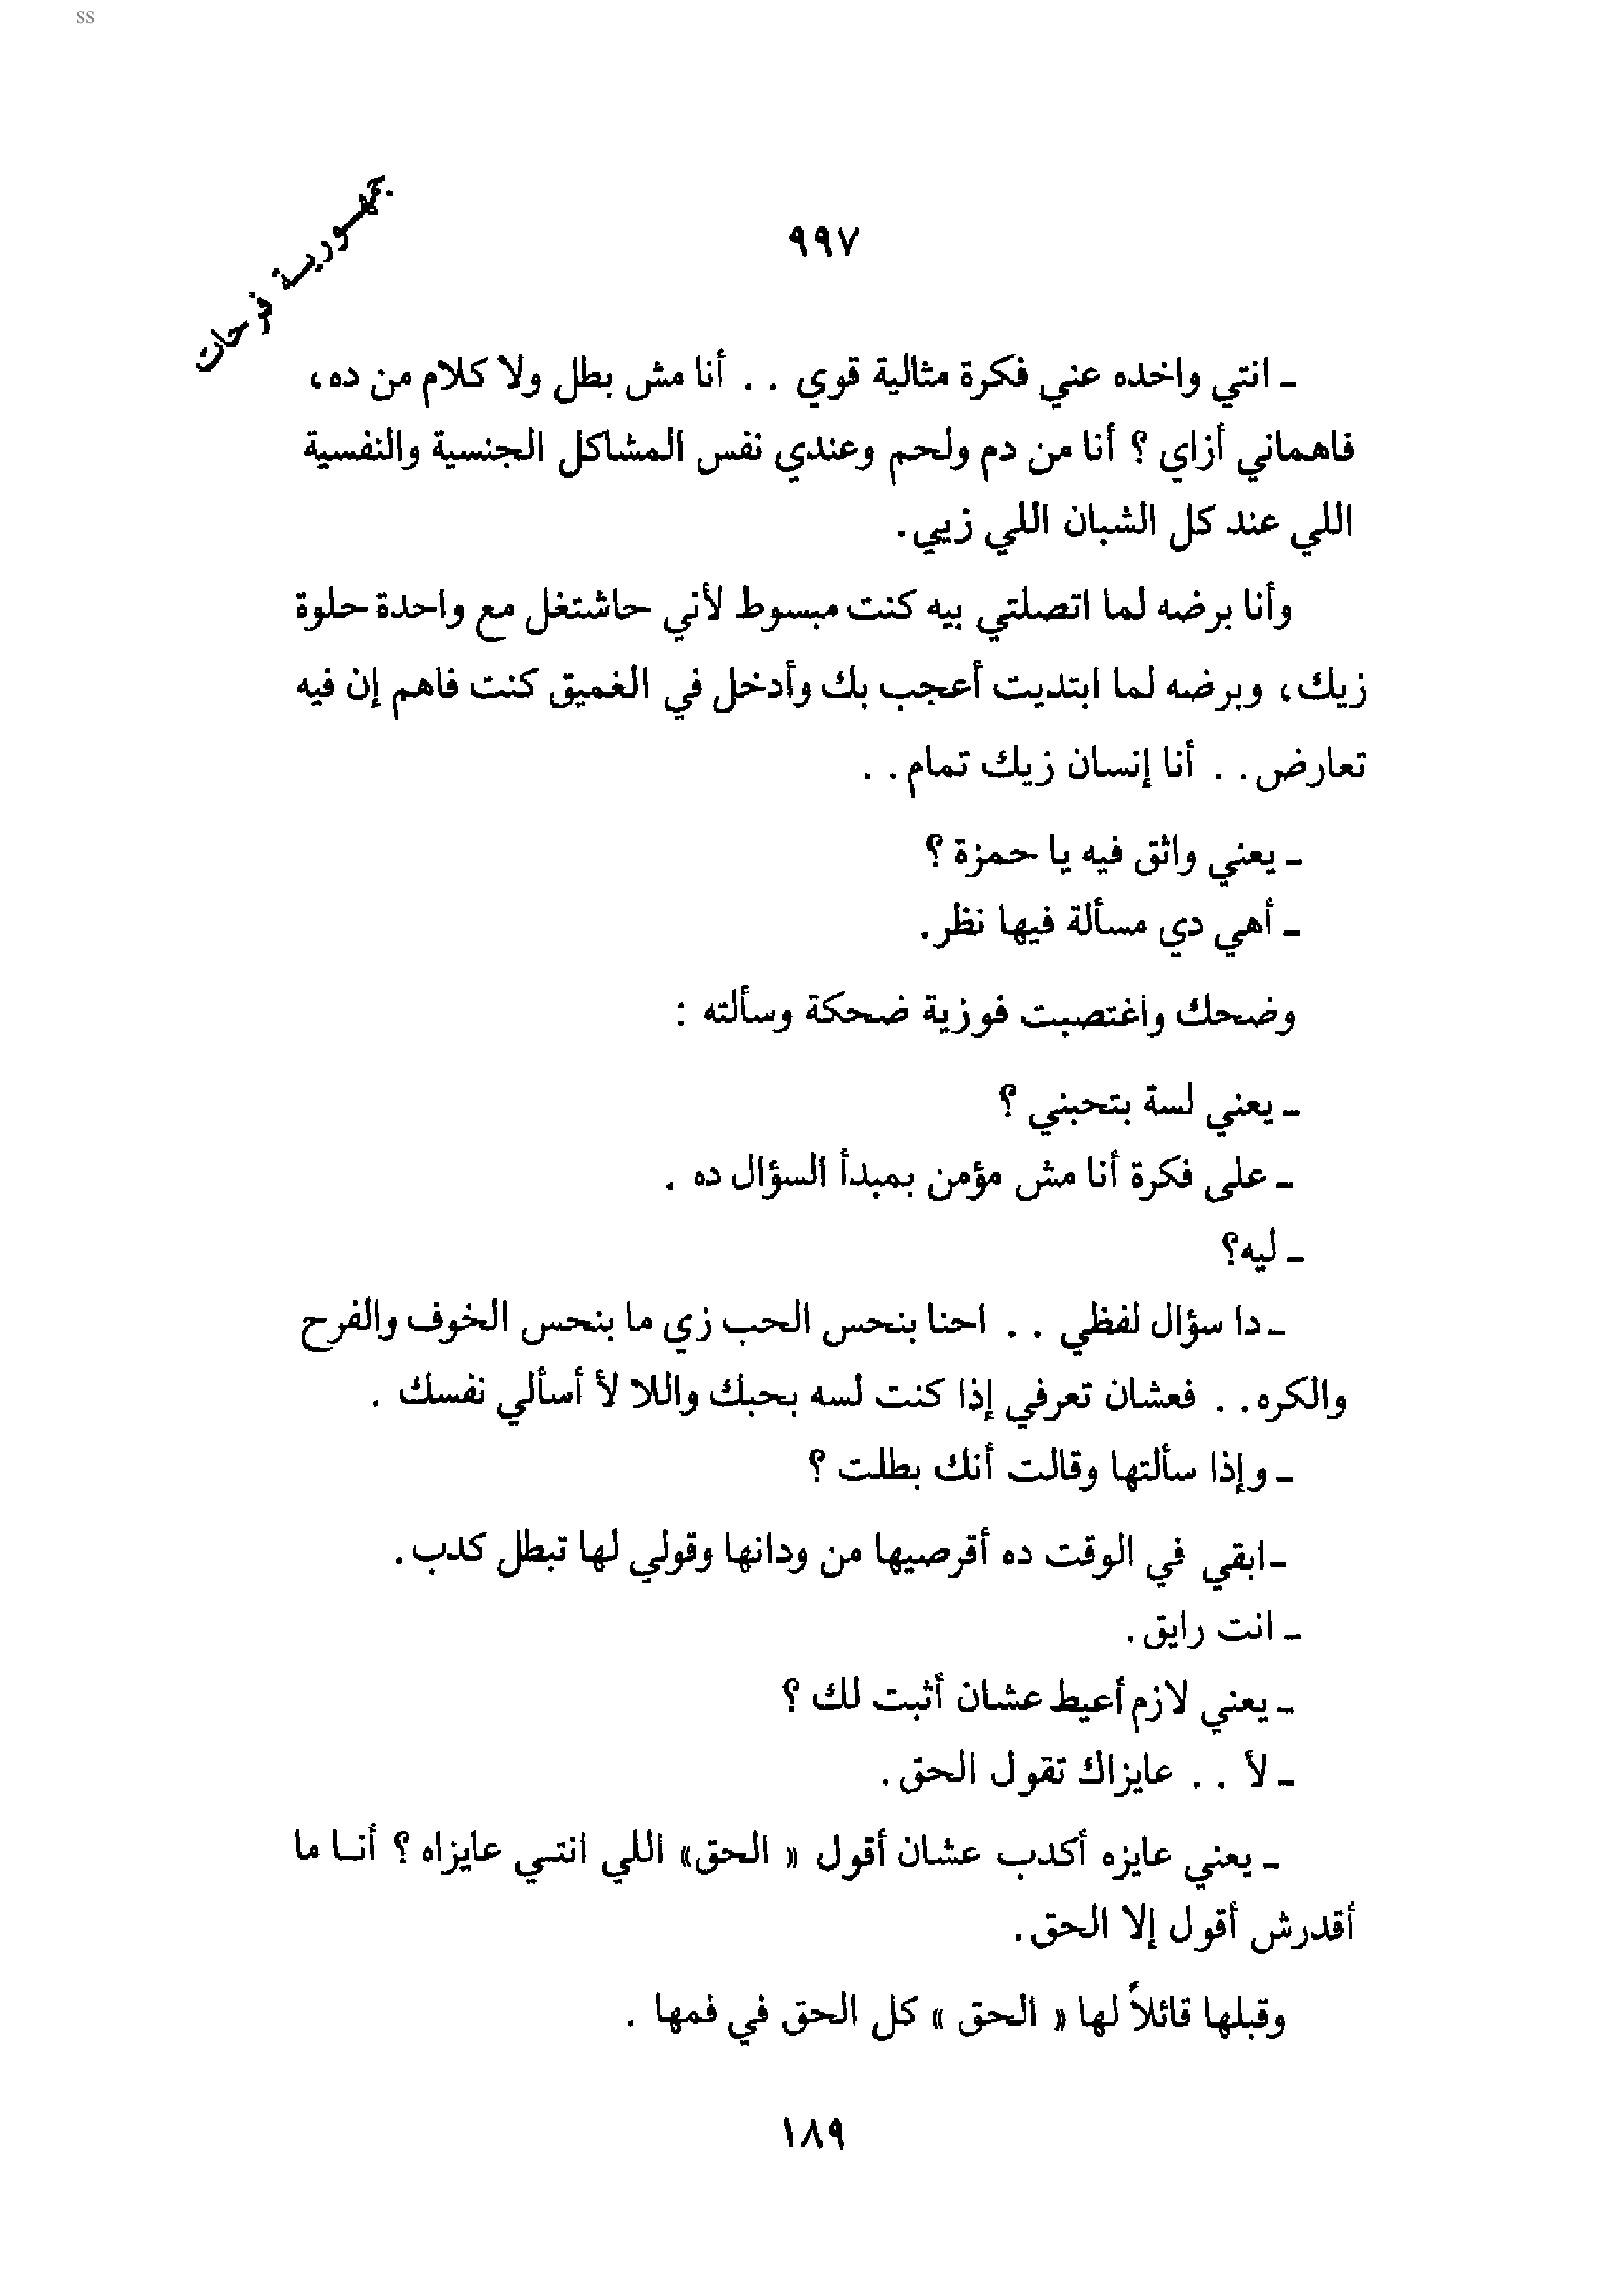 ss
جمهورية فرحات
٩٩٧
ـ انتي واخده عني فكرة مثالية قوي . . أنا مش بطل ولا كلام من ده،
فاهماني أزاي ؟ أنا من دم ولحم وعندي نفس المشاكل الجنسية والنفسية
اللي عند كل الشبان اللي زيي.
وأنا برضه لما اتصلتي بيه كنت مبسوط لأني حاشتغل مع واحدة حلوة
زيك، وبرضه لما ابتديت أعجب بك وأدخل في الغميق كنت فاهم إن فيه
تعارض. . أنا إنسان زيك تمام. .
ـ يعني واثق فيه يا حمزة ؟
ـ أهي دي مسألة فيها نظر.
وضحك واغتصبت فوزية ضحكة وسألته :
ـ يعني لسة بتحبني ؟
ـ على فكرة أنا مش مؤمن بمبدأ السؤال ده .
ـ ليه؟
ـ دا سؤال لفظي . . احنا بنحس الحب زي ما بنحس الخوف والفرح
والكره. . فعشان تعرفي إذا كنت لسه بحبك واللا لأ أسألي نفسك .
ـ وإذا سألتها وقالت أنك بطلت ؟
ـ ابقي في الوقت ده أقرصيها من ودانها وقولي لها تبطل كدب.
ـ انت رايق.
ـ يعني لازم أعيط عشان أثبت لك ؟
ـ لأ . . عايزاك تقول الحق.
ـ يعني عايزه أكدب عشان أقول « الحق» اللي انتي عايزاه ؟ أنا ما
أقدرش أقول إلا الحق.
وقبلها قائلاً لها « الحق » كل الحق في فمها .
١٨٩